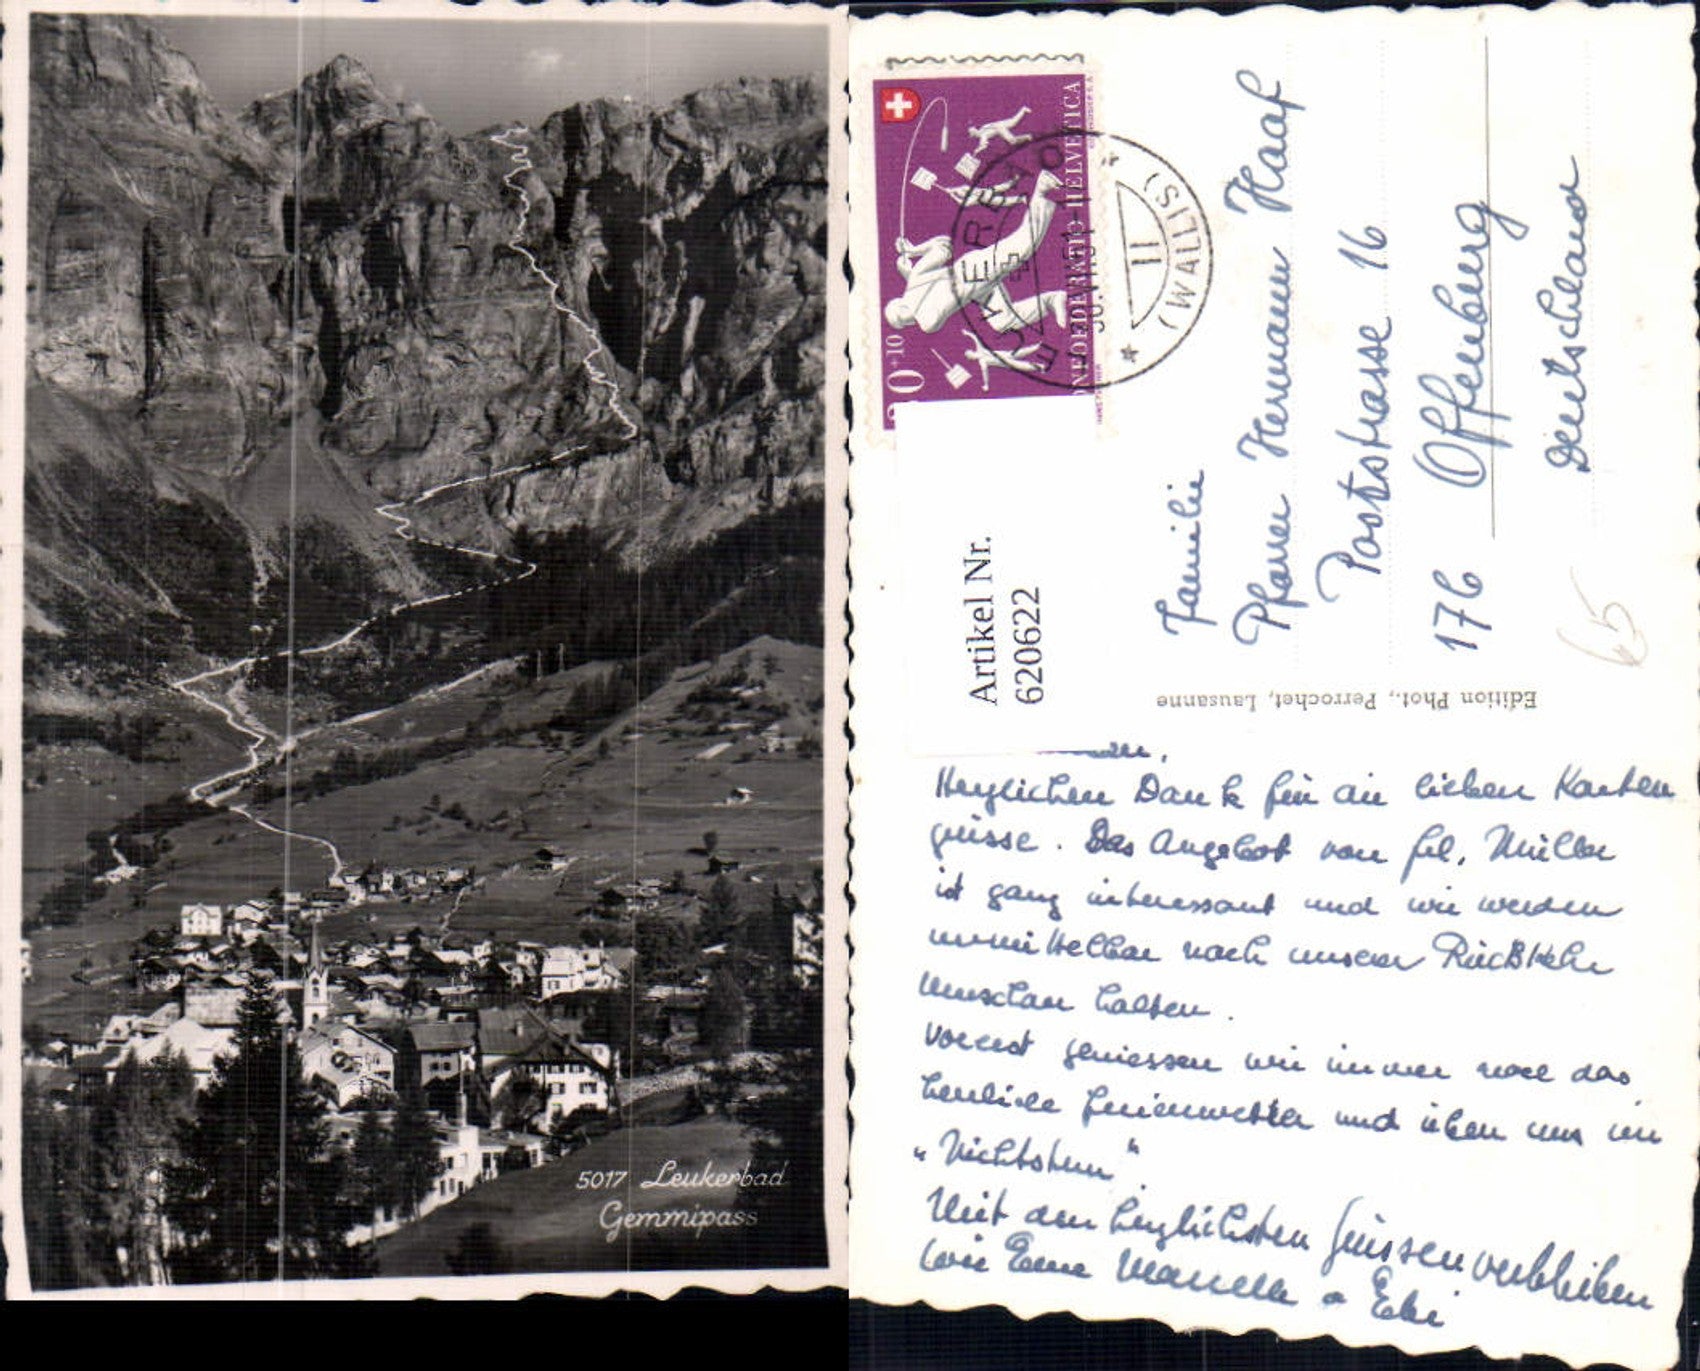 5017 Leukerbad
Gemmipass
HELVETICA
20+10
EVERENO
(WALLIS)
Artikel Nr.
620622
Familie
Pfarrer Hermann Haaf
Poststrasse 16
176 Offenburg
Deutschland
65
Edition Phot., Perrochet, Lausanne
Herzlichen Dank für die lieben Karten
grüsse. Das Angebot von Frl. Müller
ist ganz interessant und wir werden
unmittelbar nach unserer Rückkehr
Umschau halten.
Vorerst geniessen wir immer noch das
herrliche Ferienwetter und üben uns im
„Nichtstun"
Mit den herzlichsten Grüssen verbleiben
wir Eure